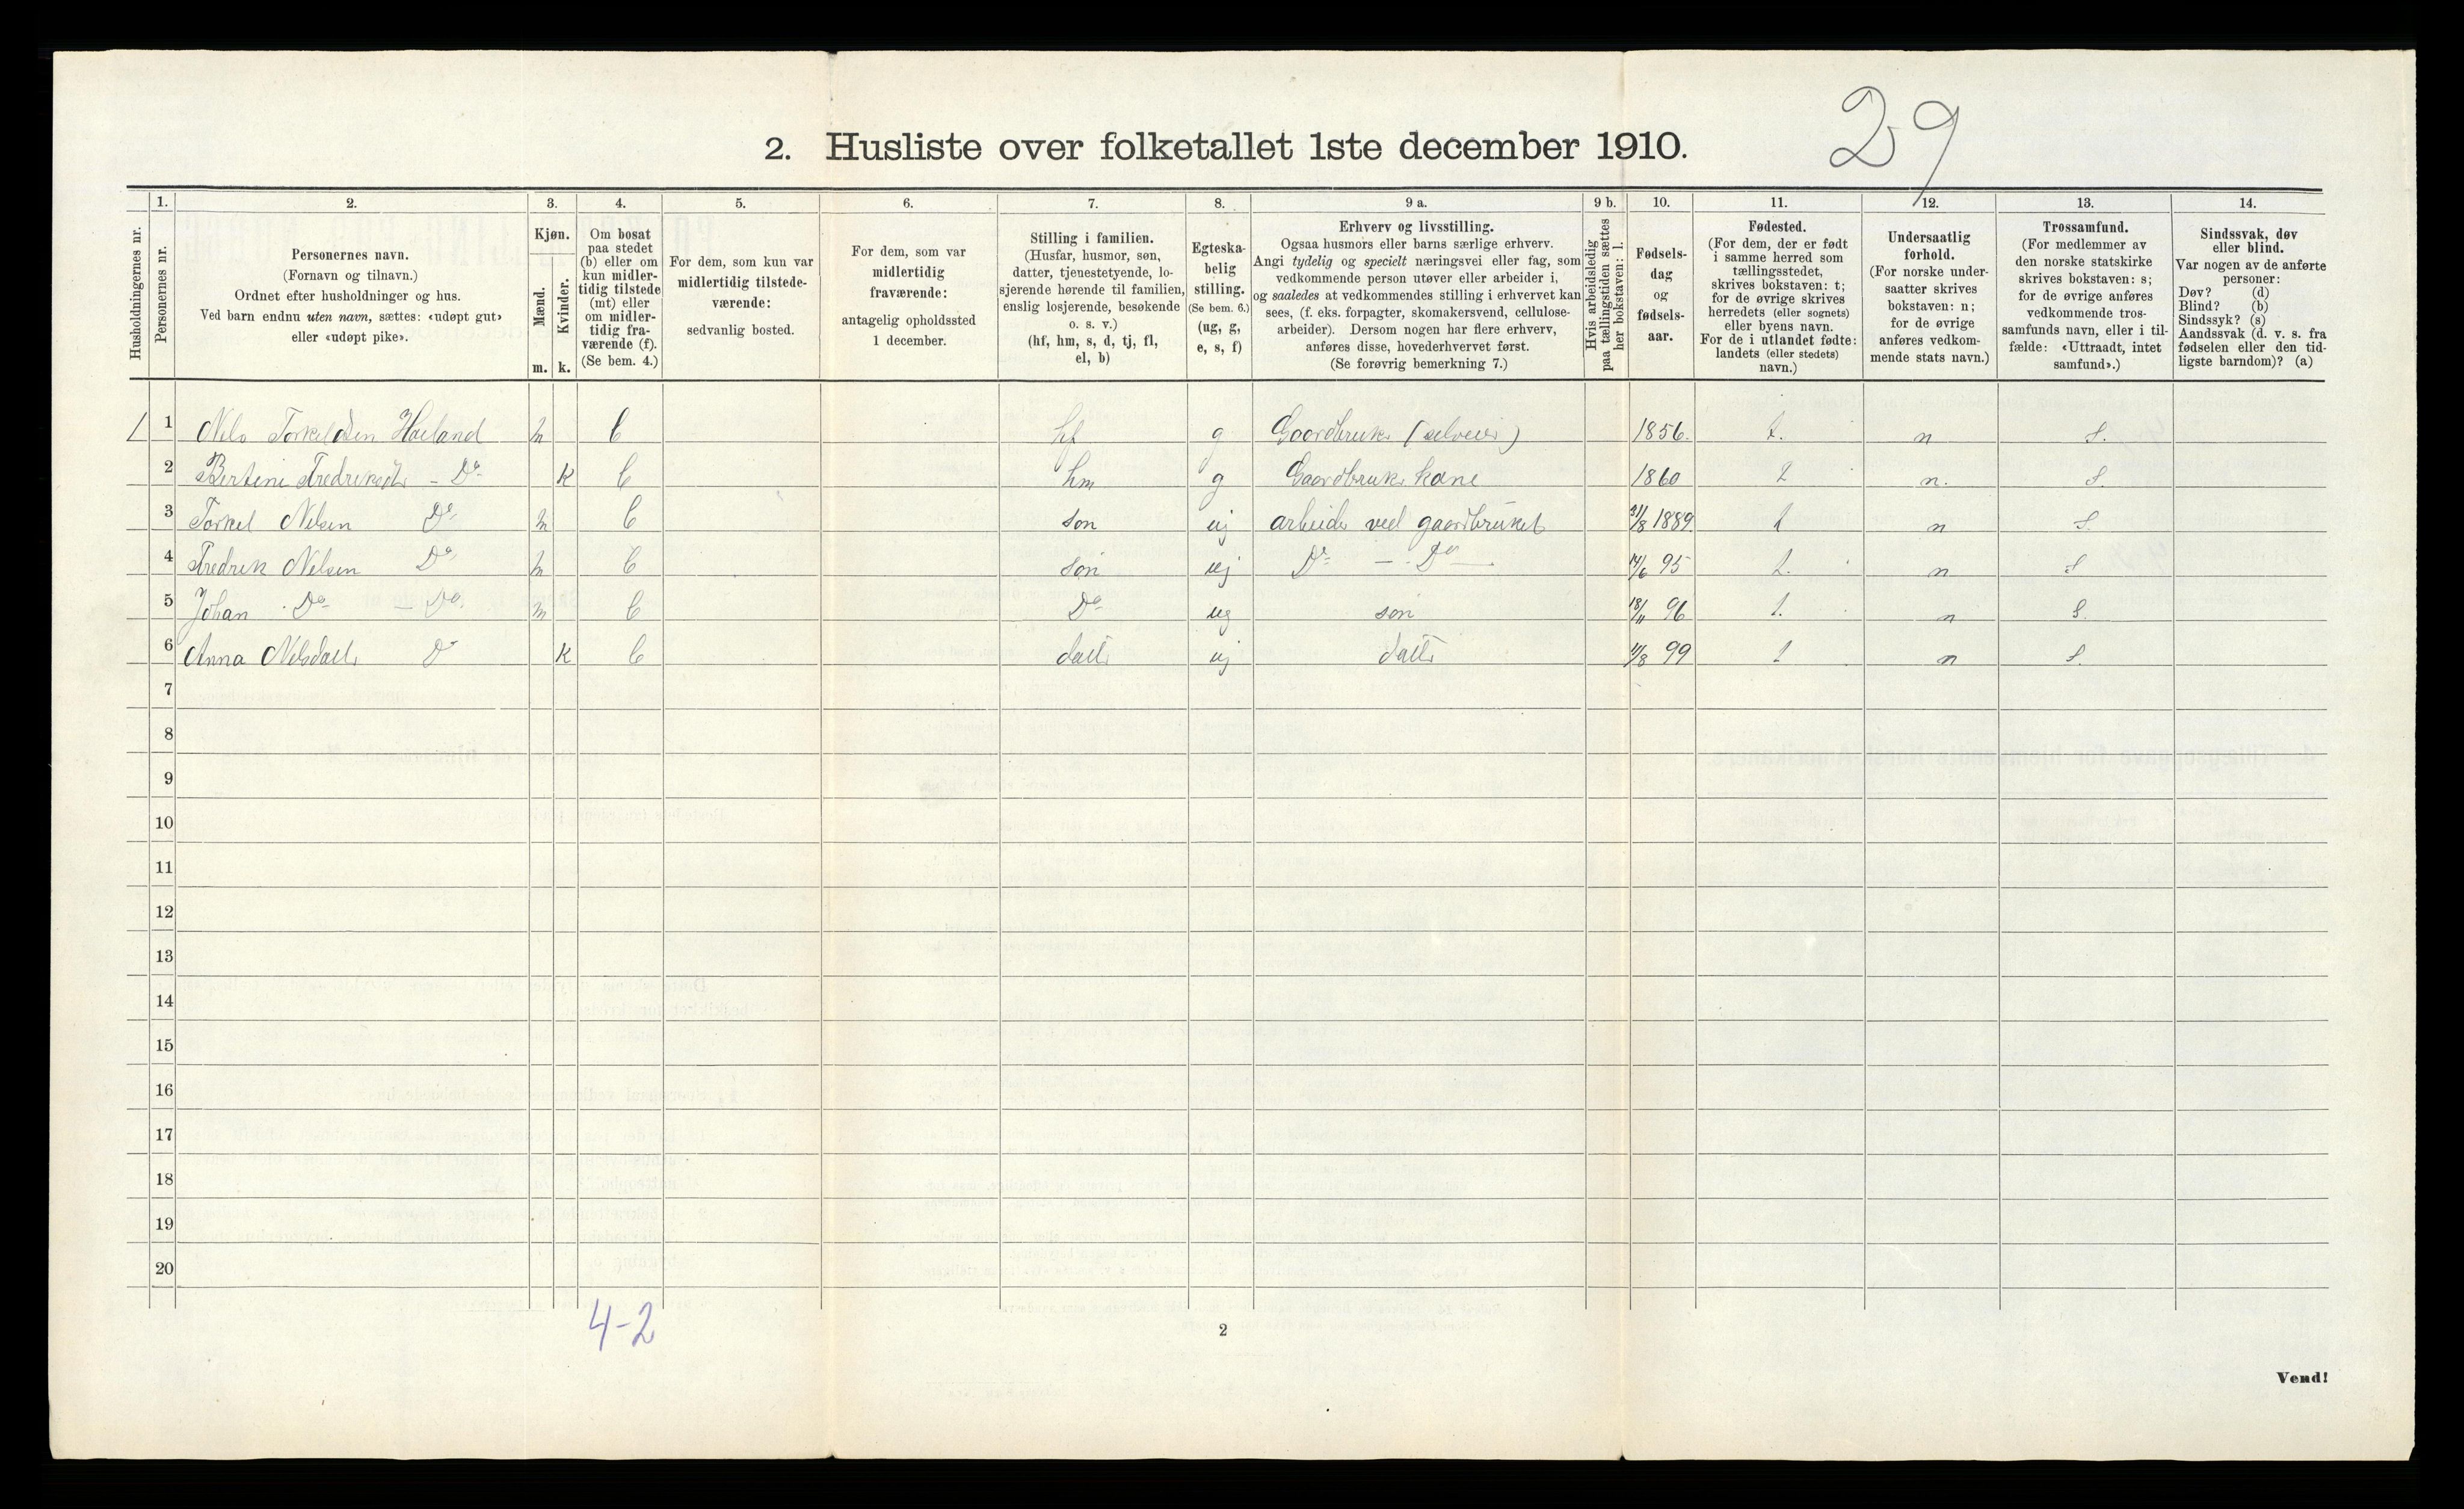 29
2. Husliste over folketallet 1ste december 1910.
Husholdningernes nr.
1.
Personernes nr.
2.
Personernes navn.
(Fornavn og tilnavn.)
Ordnet efter husholdninger og hus.
Ved barn endnu uten navn, sættes: «udøpt gut»
eller «udøpt pike».
3.
Kjøn.
Mænd.
Kvinder.
m. k.
4.
Om bosat
paa stedet
(b) eller om
kun midler-
tidig tilstede
(mt) eller
om midler-
tidig fra-
værende (f).
(Se bem. 4.)
5.
For dem, som kun var
midlertidig tilstede-
værende:
sedvanlig bosted.
6.
For dem, som var
midlertidig
fraværende:
antagelig opholdssted
1 december.
7.
Stilling i familien.
(Husfar, husmor, søn,
datter, tjenestetyende, lo-
sjerende hørende til familien,
enslig losjerende, besøkende
o. s. v.)
(hf, hm, s, d, tj, fl,
el, b)
8.
Egteska-
belig
stilling.
(Se bem. 6.)
(ug, g,
e, s, f)
9 a.
Erhverv og livsstilling.
Ogsaa husmors eller barns særlige erhverv.
Angi tydelig og specielt næringsvei eller fag, som
vedkommende person utøver eller arbeider i,
og saaledes at vedkommendes stilling i erhvervet kan
sees, (f. eks. forpagter, skomakersvend, cellulose-
arbeider). Dersom nogen har flere erhverv,
anføres disse, hovederhvervet først.
(Se forøvrig bemerkning 7.)
9 b.
Hvis arbeidsledig
paa tællingstiden sættes
her bokstaven: l.
10.
Fødsels-
dag
og
fødsels-
aar.
11.
Fødested.
(For dem, der er født
i samme herred som
tællingsstedet,
skrives bokstaven: t;
for de øvrige skrives
herredets (eller sognets)
eller byens navn.
For de i utlandet fødte:
landets (eller stedets)
navn.)
12.
Undersaatlig
forhold.
(For norske under-
saatter skrives
bokstaven: n;
for de øvrige
anføres vedkom-
mende stats navn.)
13.
Trossamfund.
(For medlemmer av
den norske statskirke
skrives bokstaven: s;
for de øvrige anføres
vedkommende tros-
samfunds navn, eller i til-
fælde: «Uttraadt, intet
samfund».)
14.
Sindssvak, døv
eller blind.
Var nogen av de anførte
personer:
Døv? (d)
Blind? (b)
Sindssyk? (s)
Aandssvak (d. v. s. fra
fødselen eller den tid-
ligste barndom)? (a)
1 1 Nels Torkeldsen Høiland m b hf g Gaardbruk. (selveier) 1856. t. n s.
2 Bertine Fredriksdtr - Do k b hm g Gaardbruk. kone 1860 t n. s.
3 Torkel Nelsen Do m b søn ug arbeider ved gaardbruket 31/8 1889 t n s
4 Fredrik Nelsen Do m b søn ug Do - Do 14/6 95 t. n s
5 Johan Do - Do m b Do ug søn 18/11 96 t. n s.
6 Anna Nelsdatt. Do k b datt. ug datt. 11/8 99 t n s.
7
8
9
10
11
12
13
14
15
16
17
18
19
20
4-2
2
Vend!